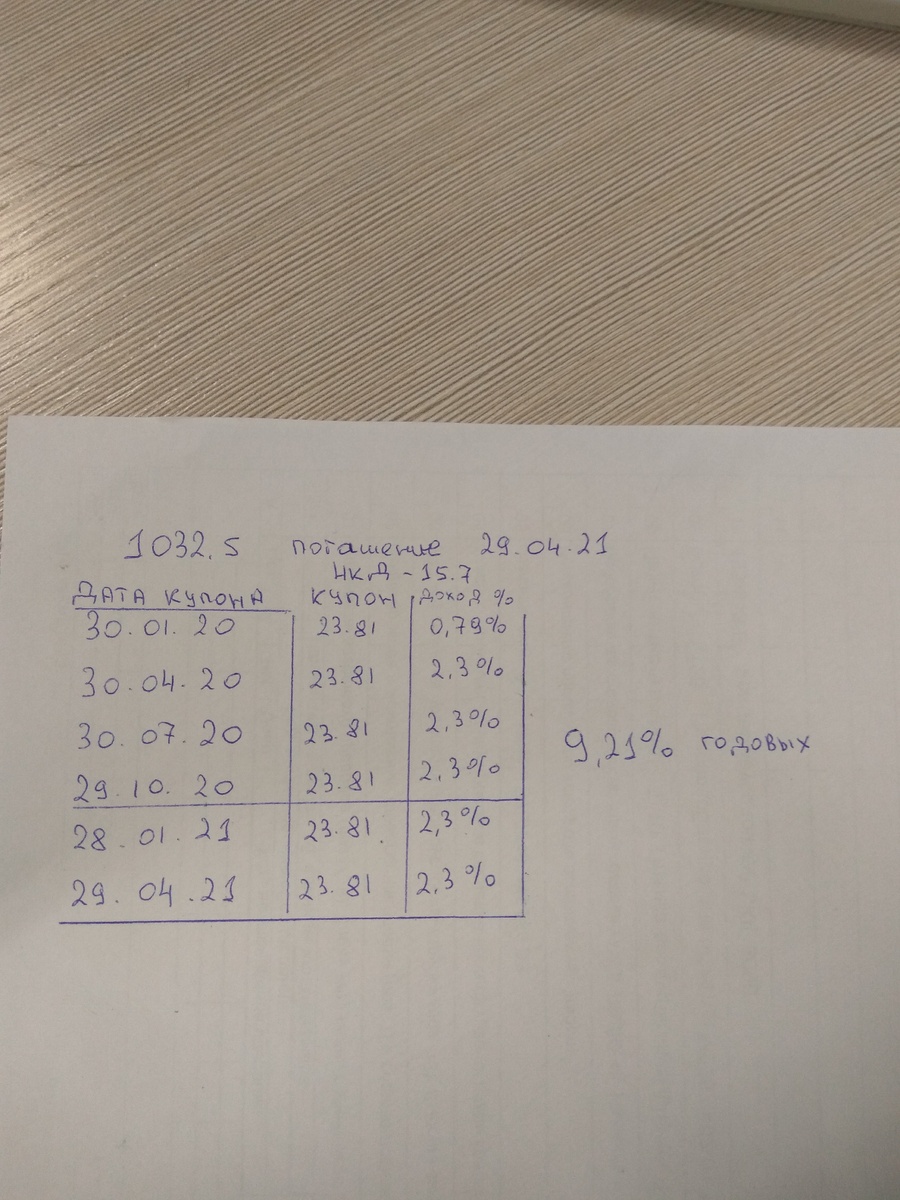 1032.5 погашение 29.04.21
НКД - 15.7
ДАТА КУПОНА КУПОН ДОХОД %
30.01.20 23.81 0,79%
30.04.20 23.81 2,3%
30.07.20 23.81 2,3%
29.10.20 23.81 2,3%
9,21% годовых
28.01.21 23.81 2,3%
29.04.21 23.81 2,3%